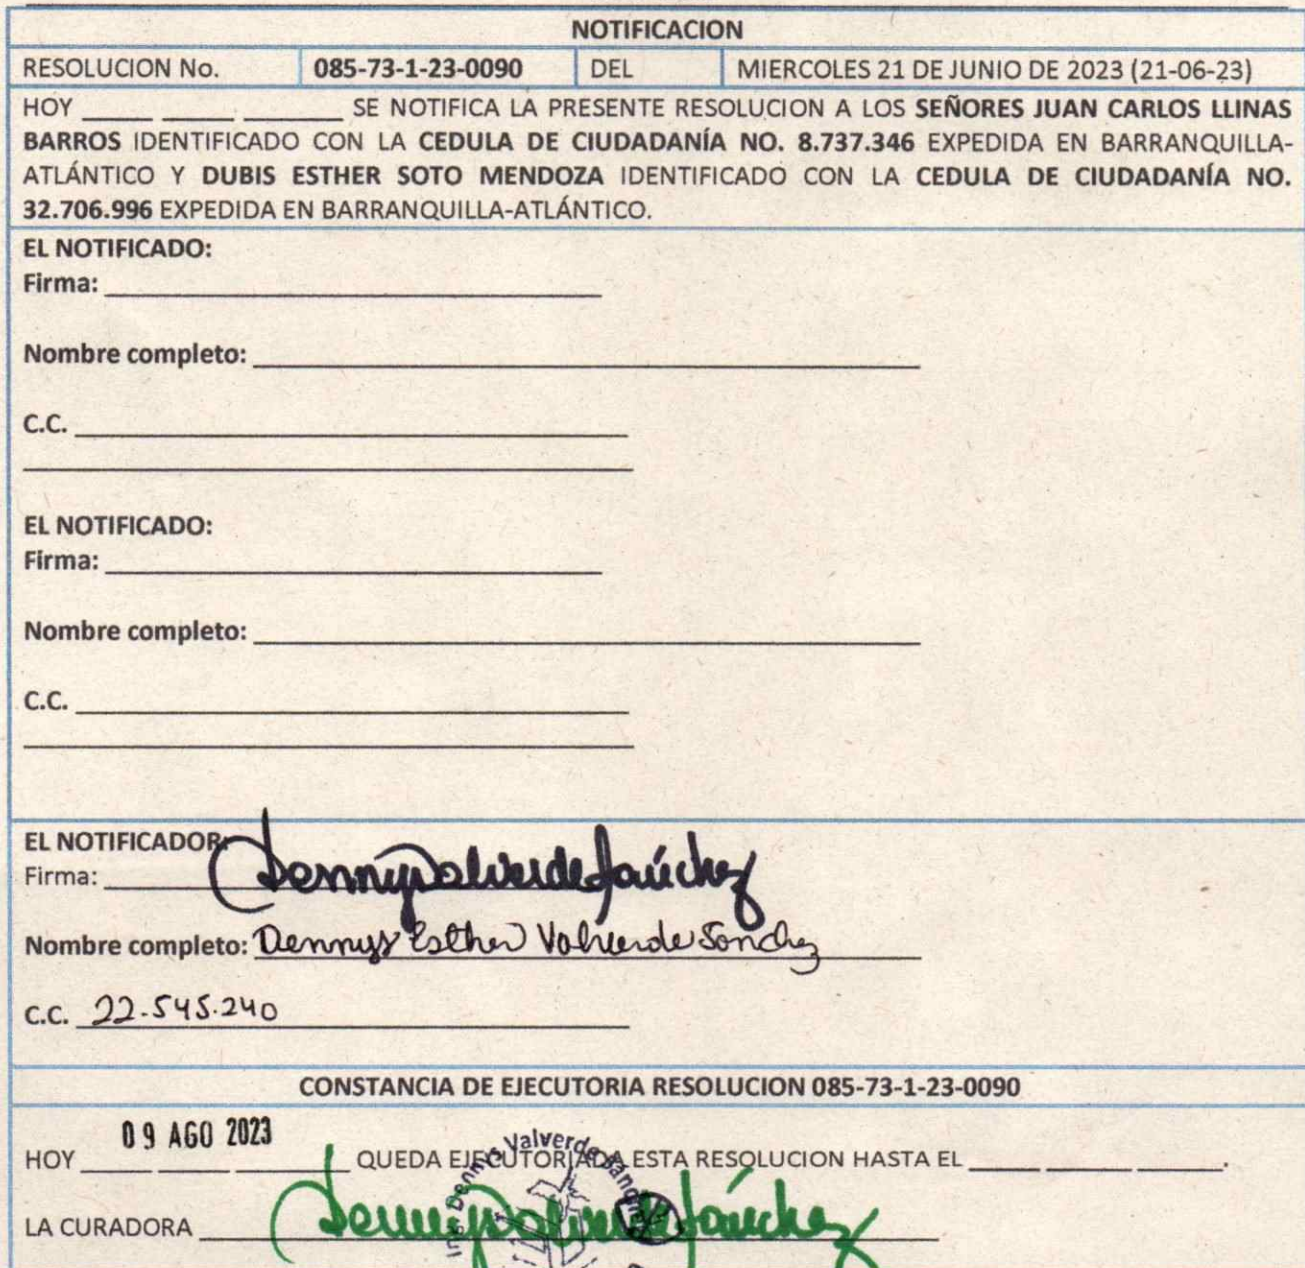 NOTIFICACION
RESOLUCION No. 085-73-1-23-0090 DEL MIERCOLES 21 DE JUNIO DE 2023 (21-06-23)
HOY _____ _____ _______ SE NOTIFICA LA PRESENTE RESOLUCION A LOS SEÑORES JUAN CARLOS LLINAS
BARROS IDENTIFICADO CON LA CEDULA DE CIUDADANÍA NO. 8.737.346 EXPEDIDA EN BARRANQUILLA-
ATLÁNTICO Y DUBIS ESTHER SOTO MENDOZA IDENTIFICADO CON LA CEDULA DE CIUDADANÍA NO.
32.706.996 EXPEDIDA EN BARRANQUILLA-ATLÁNTICO.
EL NOTIFICADO:
Firma:
Nombre completo:
C.C.
EL NOTIFICADO:
Firma:
Nombre completo:
C.C.
EL NOTIFICADOR:
Firma: Dennys Valverde Sánchez
Nombre completo: Dennys Esther Valverde Sanchez
C.C. 22.545.240
CONSTANCIA DE EJECUTORIA RESOLUCION 085-73-1-23-0090
09 AGO 2023
HOY _____ _____ ______ QUEDA EJECUTORIADA ESTA RESOLUCION HASTA EL _____ _____ ______.
Ing. Dennys Valverde Sánchez
LA CURADORA Dennys Valverde Sánchez